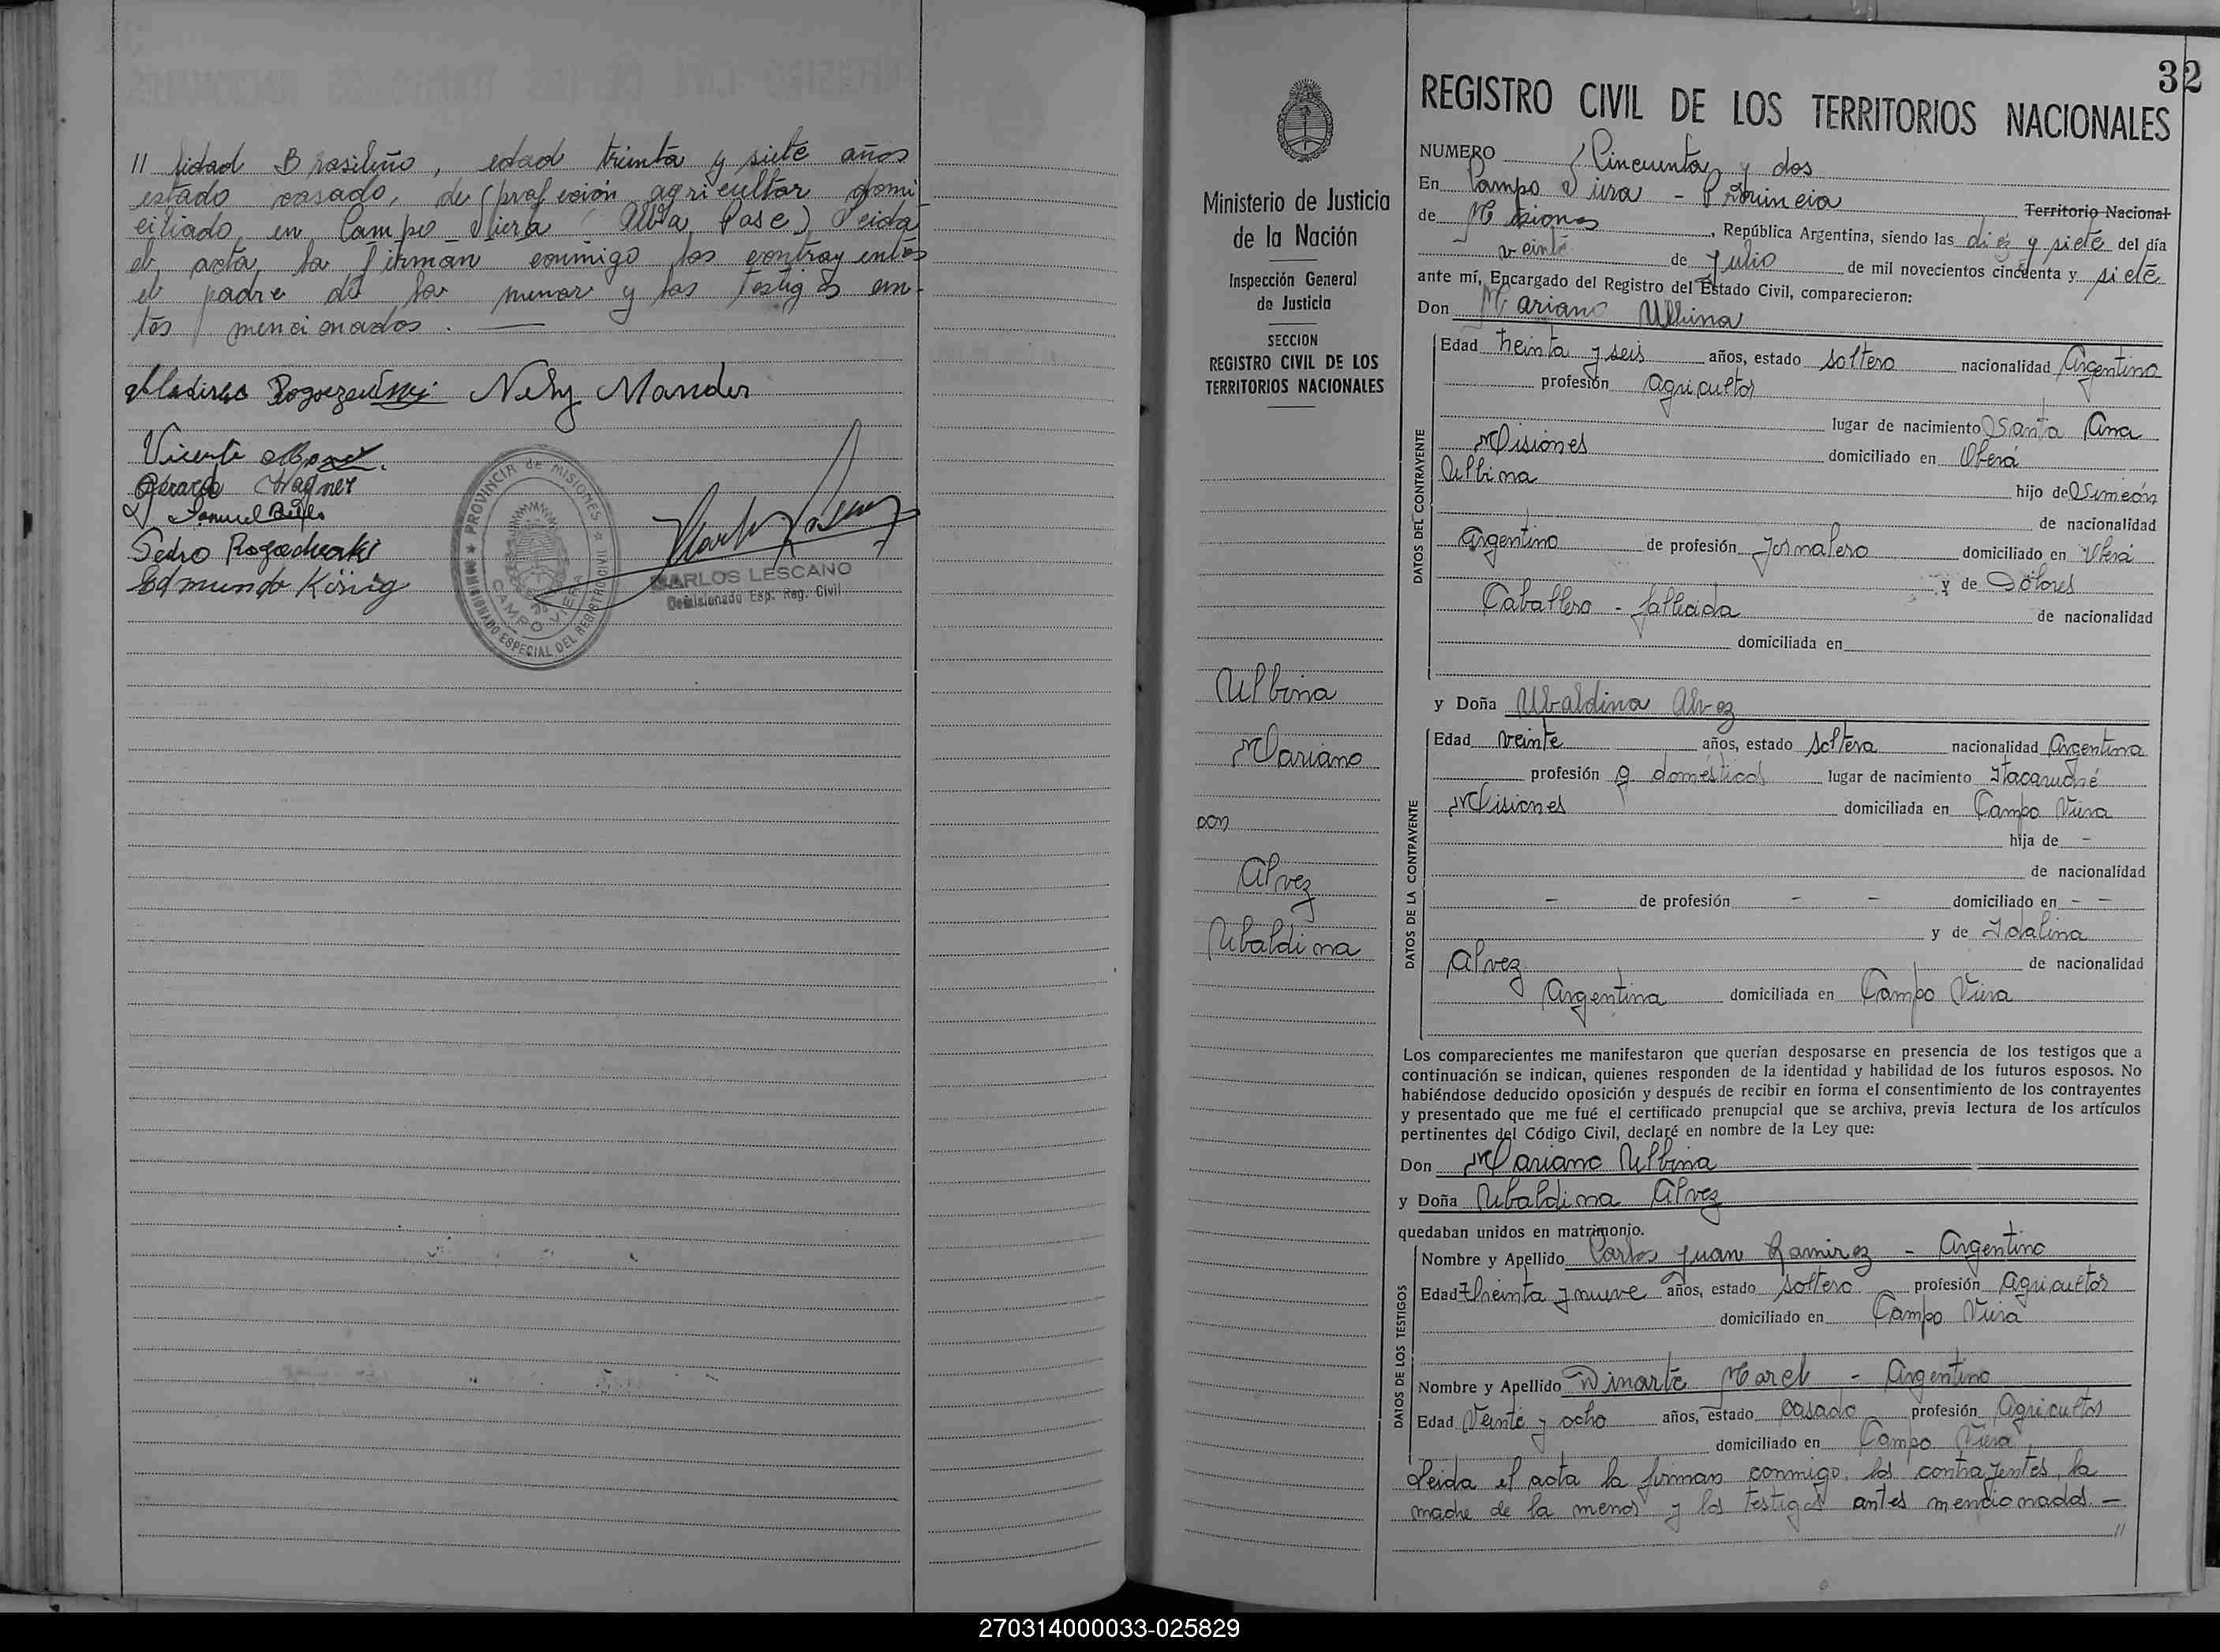 // lidad Brasileño, edad treinta y siete años
estado casado, de profeción agricultor domi
ciliado en Campo Viera (Alba Pose) Leida
el acta, la firman conmigo los contrayentes
el padre de la menor y los testigos an-
tes mencionados. —
Nely Mander
Vicente
Gerardo Wagner
Samuel
Pedro
Edmundo König
PROVINCIA de MISIONES
COMISIONADO ESPECIAL DEL REGISTRO CIVIL
CAMPO VIERA
CARLOS LESCANO
Comisionado Esp. Reg. Civil
32
Ministerio de Justicia
de la Nación
Inspección General
de Justicia
SECCION
REGISTRO CIVIL DE LOS
TERRITORIOS NACIONALES
Ulbina
Mariano
con
Alvez
Ubaldina
REGISTRO CIVIL DE LOS TERRITORIOS NACIONALES
NUMERO Cincuenta y dos
En Campo Viera - Provincia Territorio Nacional
de Misiones, República Argentina, siendo las diez y siete del día
veinte de Julio de mil novecientos cincuenta y siete
ante mí, Encargado del Registro del Estado Civil, comparecieron:
Don Mariano Ulbina
DATOS DEL CONTRAYENTE
Edad treinta y seis años, estado soltero nacionalidad Argentino
profesión agricultor
lugar de nacimiento Santa Ana
Misiones domiciliado en Oberá
Ulbina hijo de Simeón
de nacionalidad
argentino de profesión Jornalero domiciliado en Oberá
y de Dolores
Caballero - fallecida de nacionalidad
domiciliada en
y Doña Ubaldina Alvez
DATOS DE LA CONTRAYENTE
Edad veinte años, estado soltera nacionalidad Argentina
profesión q domésticos lugar de nacimiento Itacaruaré
Misiones domiciliada en Campo Viera
hija de -
de nacionalidad
- de profesión - - domiciliado en - -
y de Idalina
Alvez de nacionalidad
Argentina domiciliada en Campo Viera
Los comparecientes me manifestaron que querían desposarse en presencia de los testigos que a
continuación se indican, quienes responden de la identidad y habilidad de los futuros esposos. No
habiéndose deducido oposición y después de recibir en forma el consentimiento de los contrayentes
y presentado que me fué el certificado prenupcial que se archiva, previa lectura de los artículos
pertinentes del Código Civil, declaré en nombre de la Ley que:
Don Mariano Ulbina
y Doña Ubaldina Alvez
quedaban unidos en matrimonio.
DATOS DE LOS TESTIGOS
Nombre y Apellido Carlos Juan Ramirez - Argentino
Edad treinta y nueve años, estado soltero profesión agricultor
domiciliado en Campo Viera
Nombre y Apellido Dinarte Marel - Argentino
Edad Veinte y ocho años, estado casado profesión Agricultor
domiciliado en Campo Viera
Leida el acta la firman conmigo, los contrayentes, la
madre de la menor y los testigos antes mencionados —
//
270314000033-025829